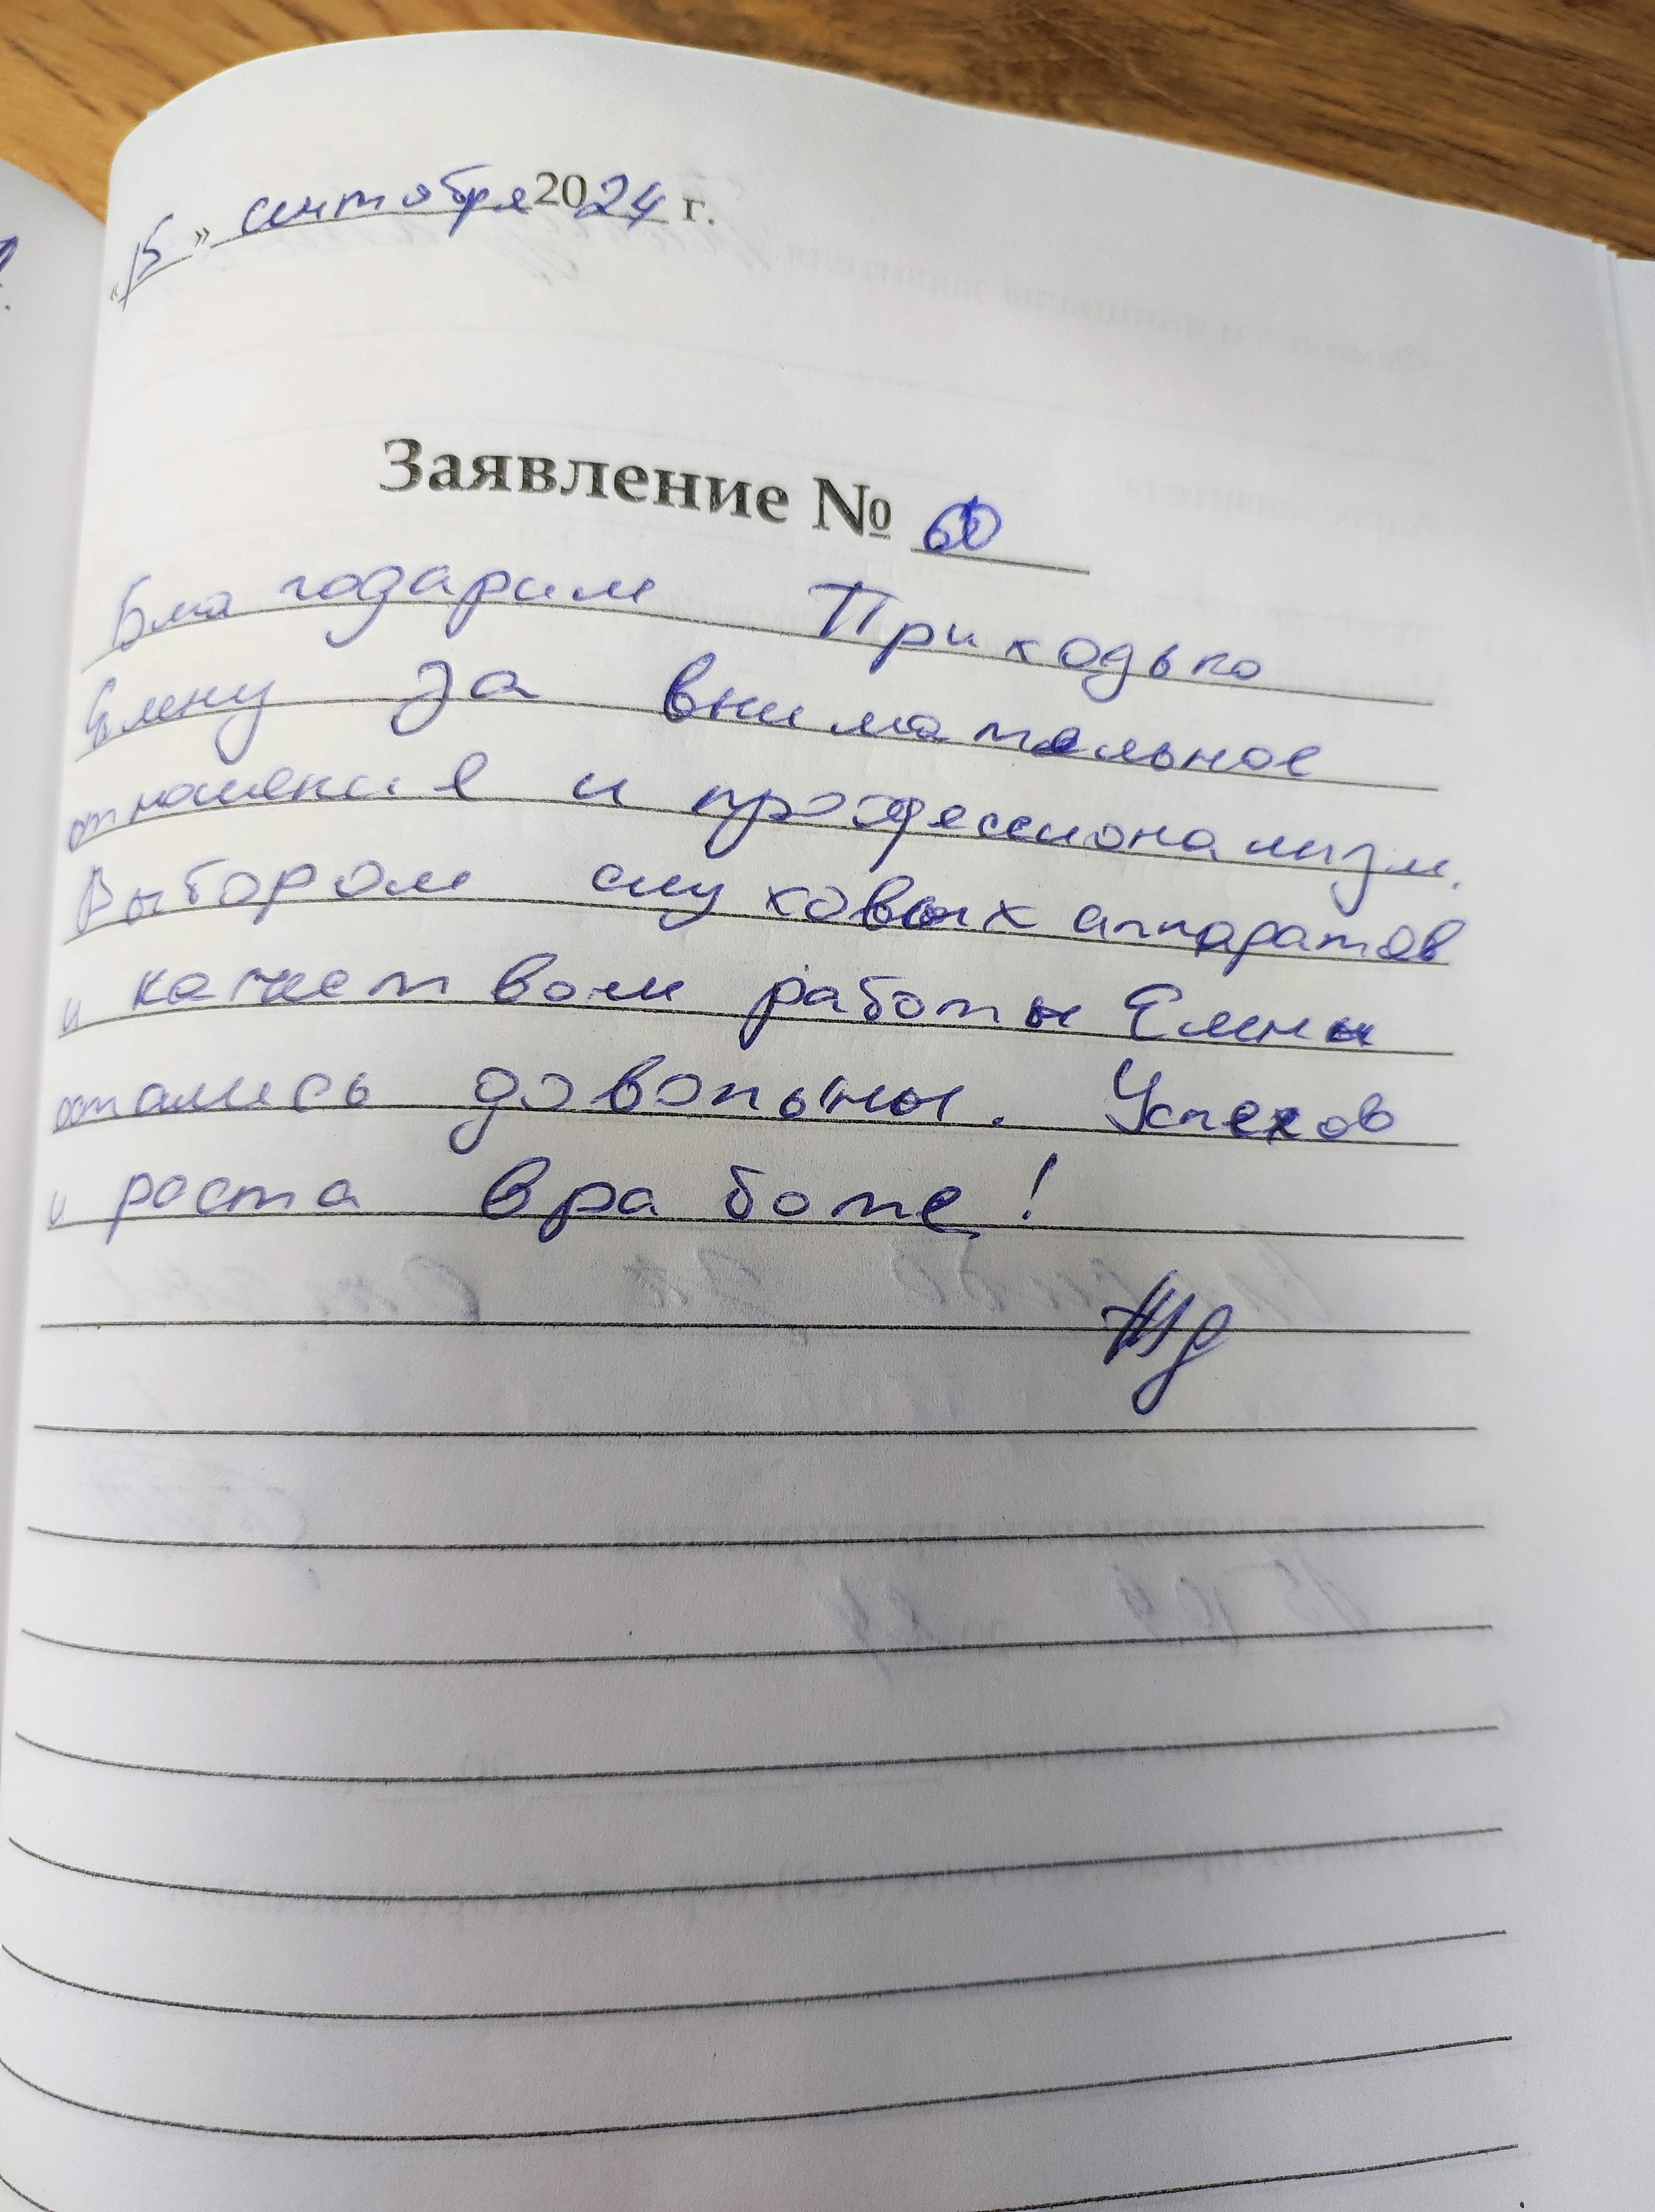 «15» сентября 2024 г.
Заявление № 60
Благодарим Приходько
Елену за внимательное
отношение и профессионализм.
Выбором слуховых аппаратов
и качеством работы Елены
остались довольны. Успехов
и роста в работе!